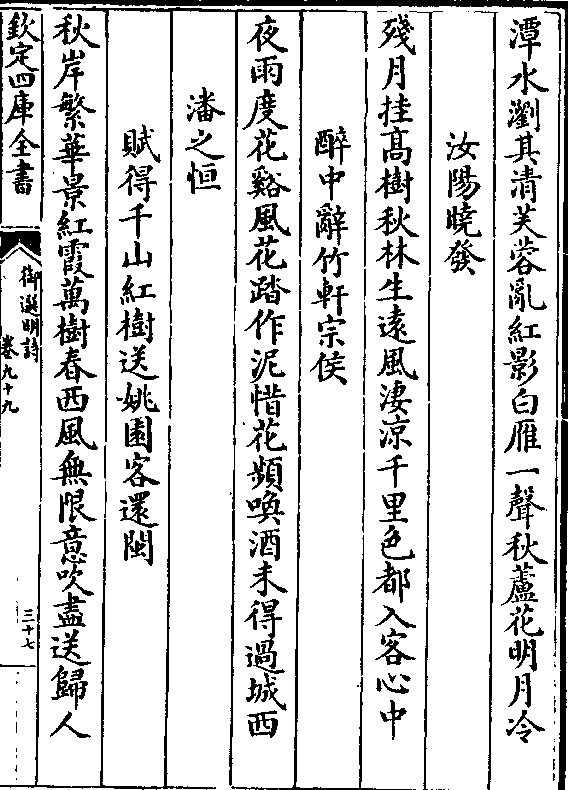 潭水瀏其清芙蓉亂紅影白雁一聲秋蘆花明月冷
汝陽曉發
殘月挂髙樹秋林生逺風淒涼千里色都入客心中
醉中辭竹軒宗侯
夜雨度花谿風花踏作泥惜花頻喚酒未得過城西
潘之恒
賦得千山紅樹送姚園客還閩
秋岸繁華景紅霞萬樹春西風無限意吹盡送歸人
欽定四庫全書
御選明詩
卷九十九
三十七